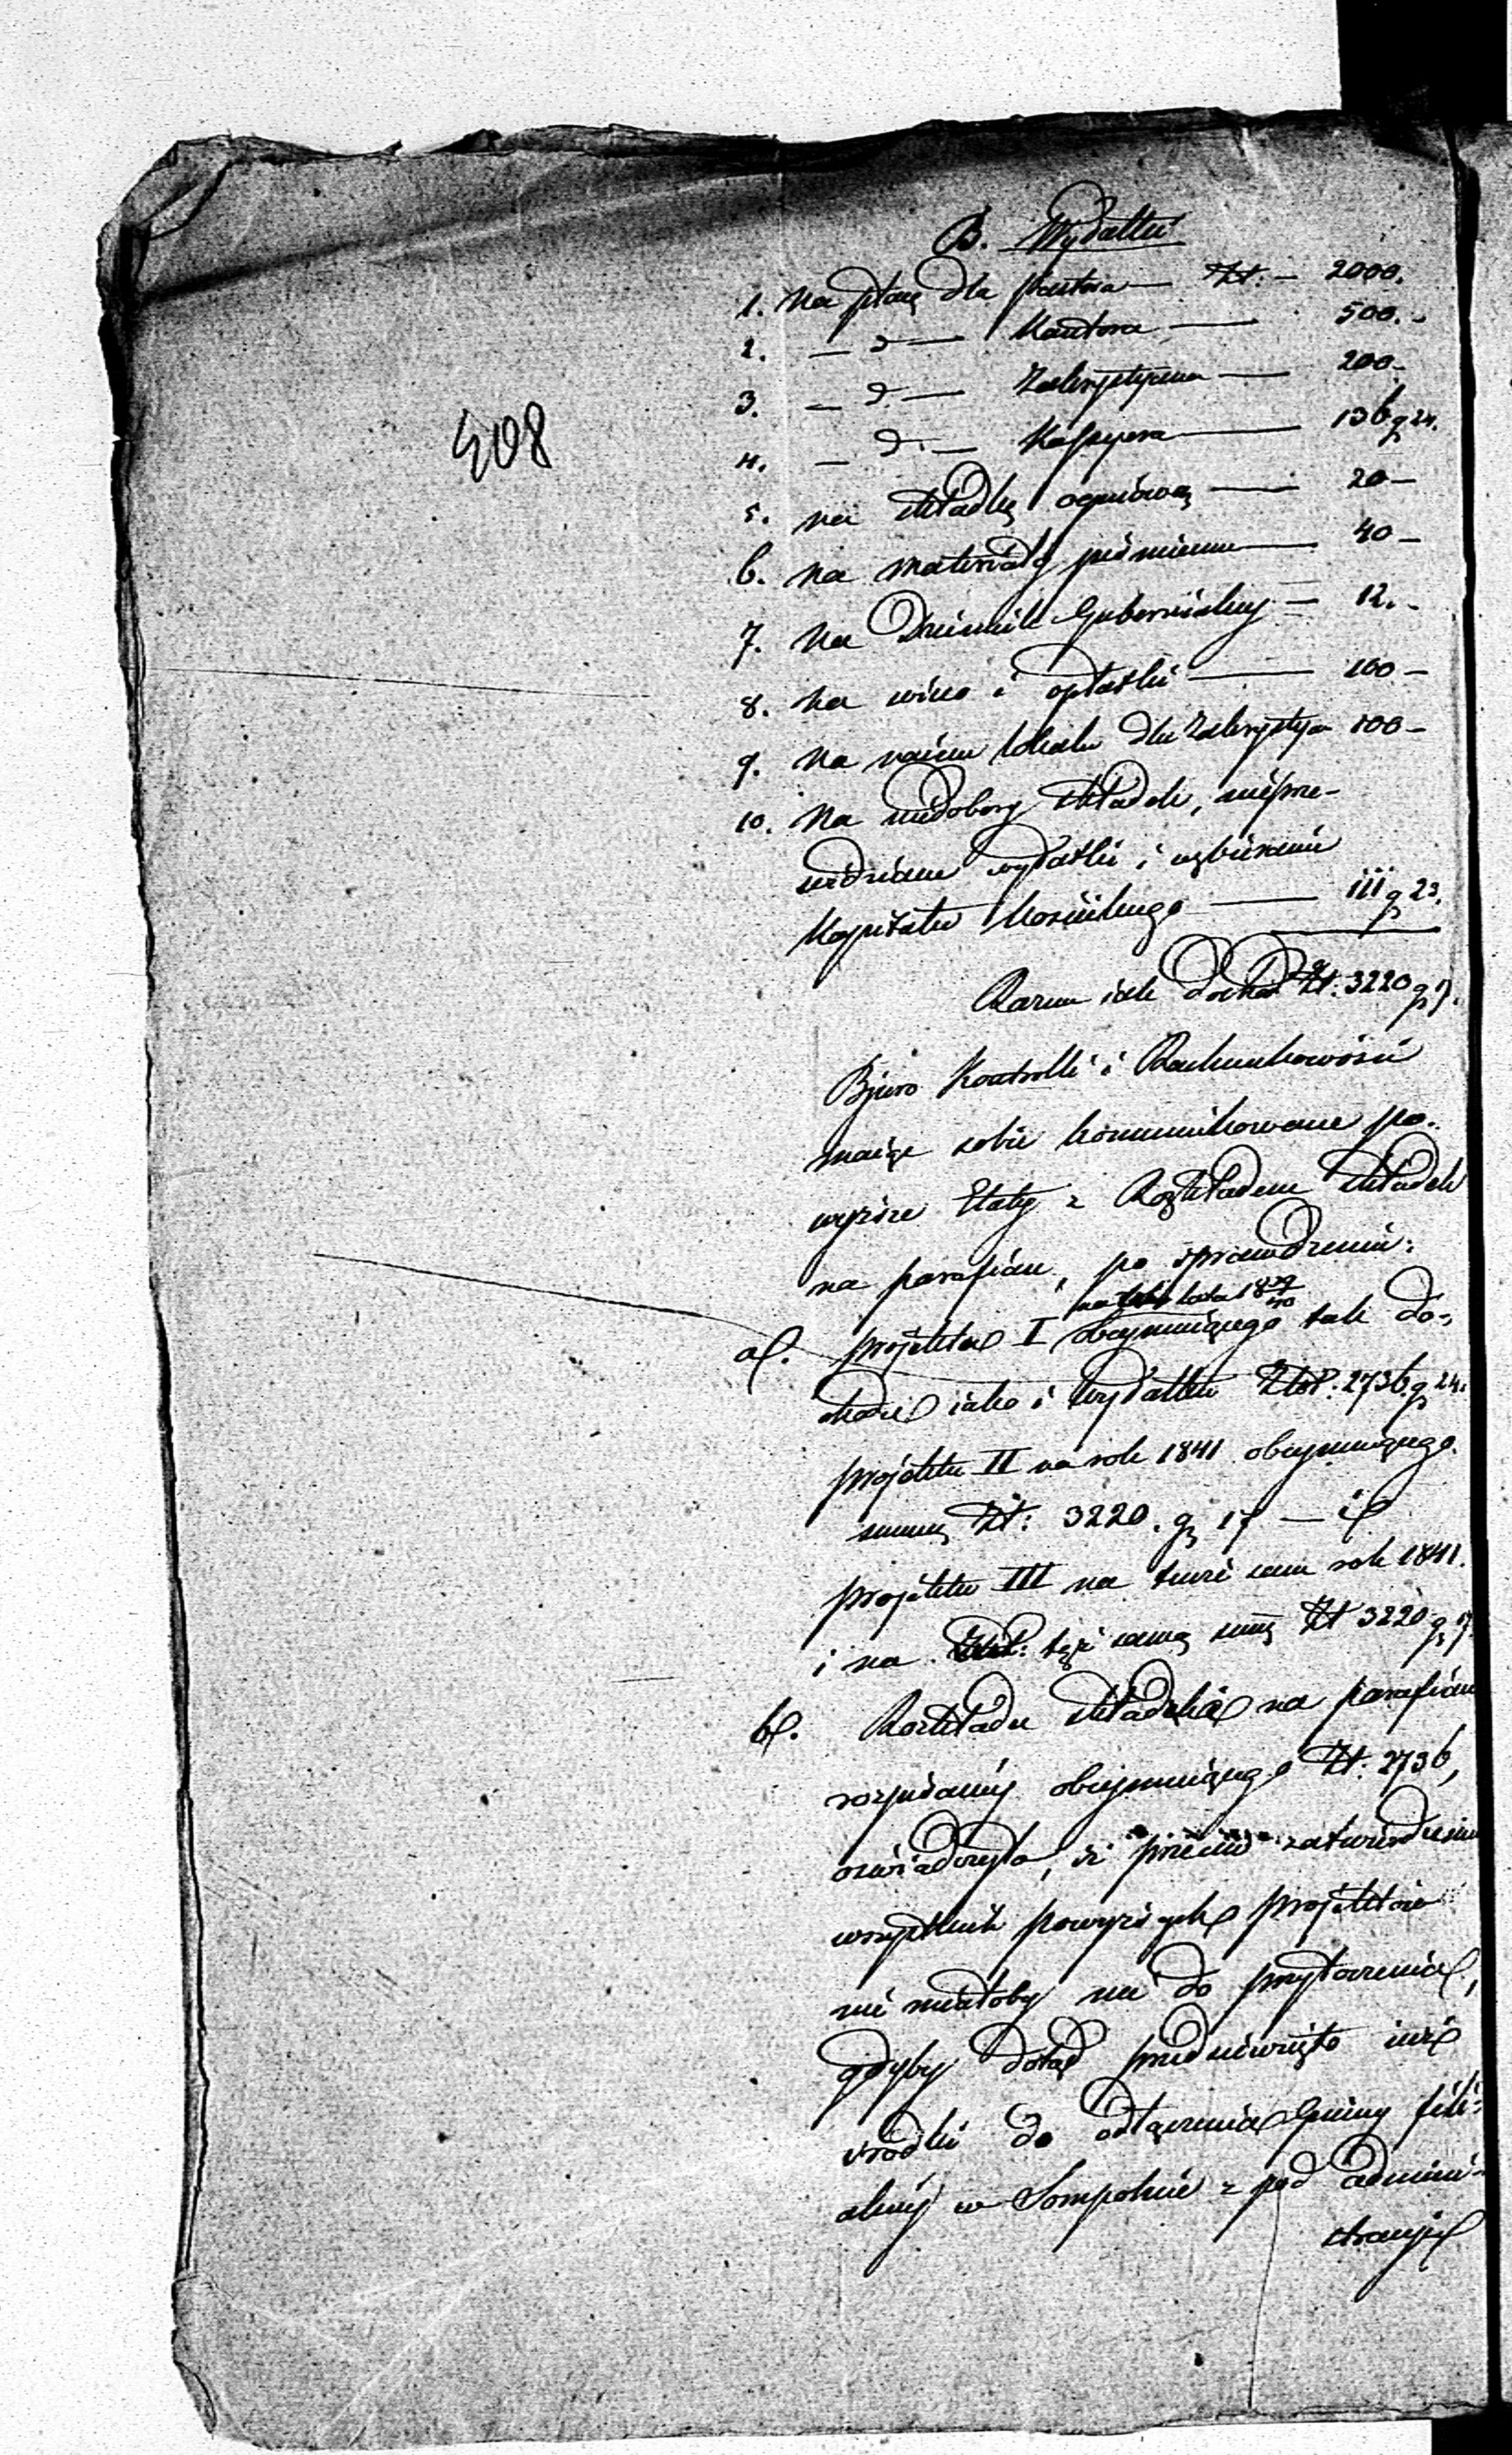 B. Wydatku
1. Na płacę dla Pastora — Zł: — 2000.
2. — d — Kantora — 500. -
3. — d. — Zakrystyana — 200 -
4. — d. — Kassyera — 136 g 24.
5. na składkę ogniową — 20 -
6. na materiały piśmienne — 40 -
7. Na Dziennik Gubernialny — 12. -
8. na wino i opłatki — 100 -
9. Na najem lokalu dla Zakrystya 100 -
10. Na niedobory składek, nieprze-
widziane wydatki i uzbieranie
Kapitału kościelnego — 111 g 23.
Razem iak dochód Zł: 3220 g 17.
408
Bjuro Kontrolli i Rachunkowości
maiąc sobie kommunikowane po-
wyższe Etaty z Rozkładem składek
na parafian, po sprawdzeniu:
na lata 18 39/40
a/. projektu I obeymuiącego tak do-
chodu iako i wydatku Złp. 2736 g 24.
projektu II na rok 1841 obeymuiącego
summę Zł: 3220. g 17 — i
projektu III na tenże sam rok 1841.
i na tęż samą summę Zł 3220 g 17.
b/. Rozkładu składki na parafian
rozpisanéy obeymuiącego Zł: 2736,
oświadczyło, że przeciw zatwierdzeniu
wszystkich powyższych projektów
nie miałoby nic do przytoczenia,
gdyby dotąd przedsięwzięto iuż
środki do odłączenia Gminy fili-
alnéy w Sompolnie z pod admini-
stracyi